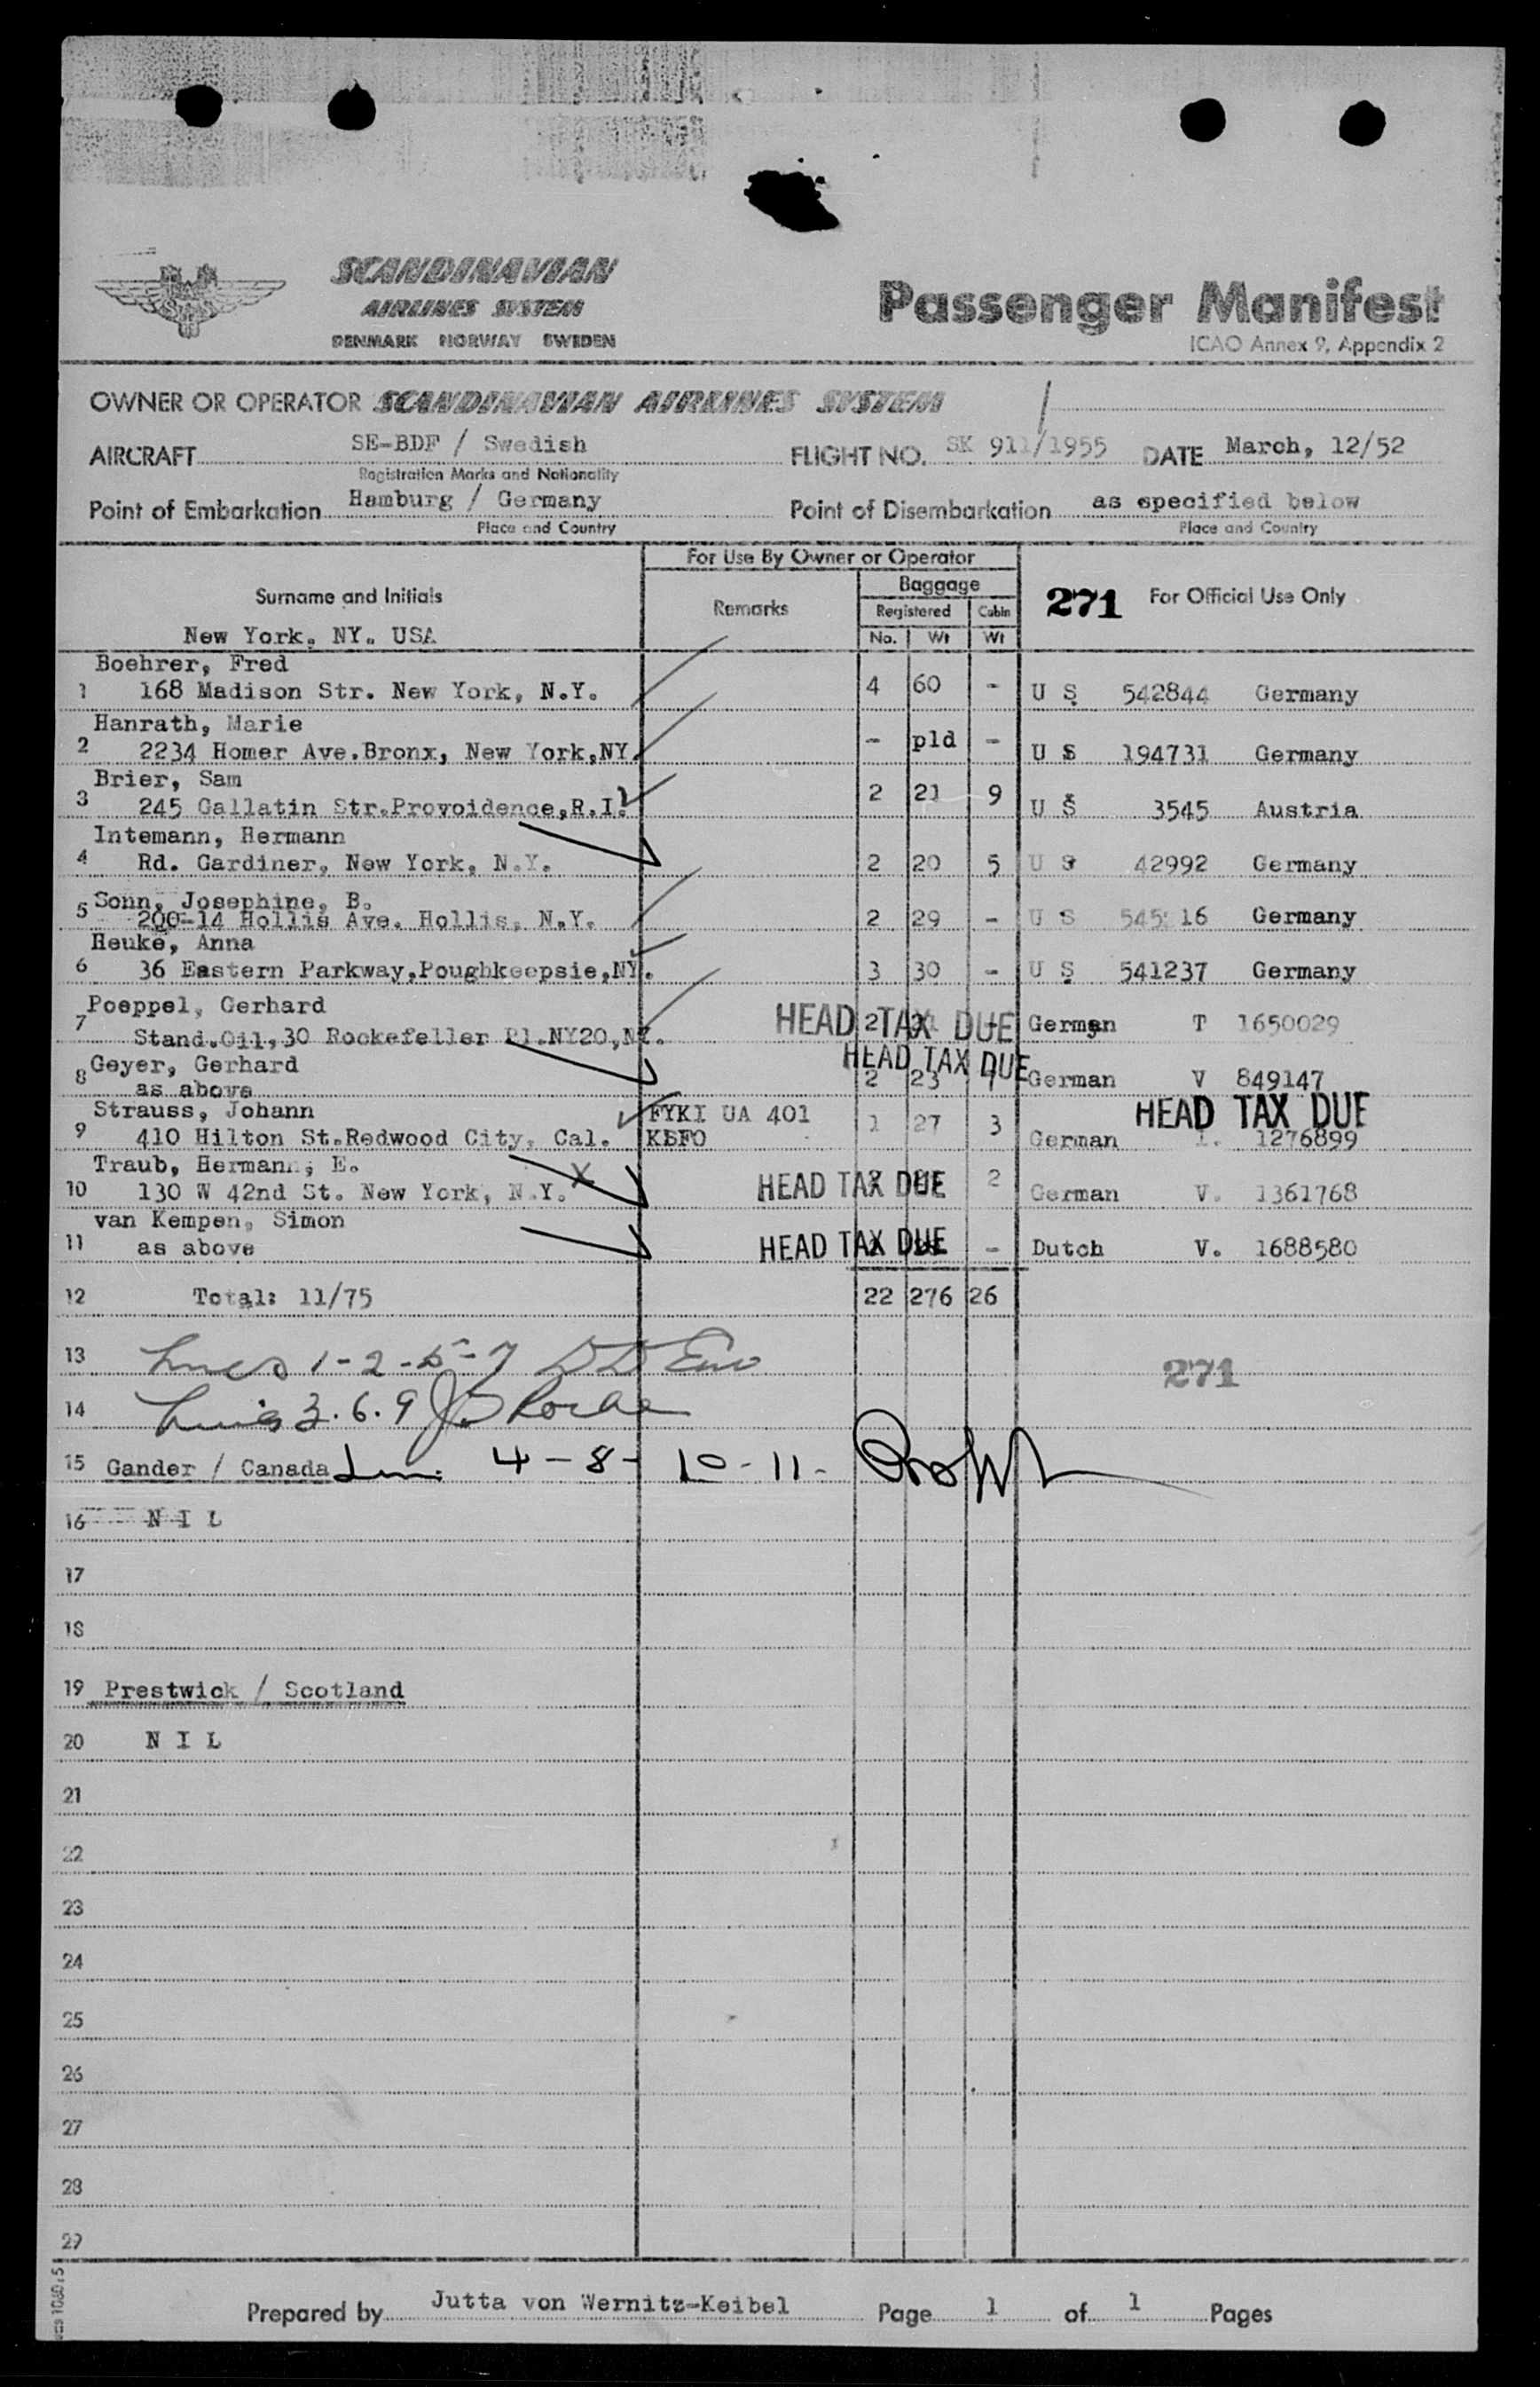 SCANDINAVIAN
AIRLINES SYSTEM
DENMARK NORWAY SWEDEN
Passenger Manifest
ICAO Annex 9, Appendix 2
OWNER OR OPERATOR SCANDINAVIAN AIRLINES SYSTEM
AIRCRAFT SE-BDF / Swedish FLIGHT NO. SK 911/1955 DATE March, 12/52
Registration Marks and Nationality
Point of Embarkation Hamburg / Germany Point of Disembarkation as specified below
Place and Country Place and Country
For Use By Owner or Operator
Surname and Initials Remarks Baggage 271 For Official Use Only
Registered Cabin
New York, NY. USA No. Wt Wt
Boehrer, Fred
1 168 Madison Str. New York, N.Y. 4 60 - U S 542844 Germany
Hanrath, Marie
2 2234 Homer Ave.Bronx, New York,NY. - pld - U S 194731 Germany
Brier, Sam
3 245 Gallatin Str.Provoidence,R.I. 2 21 9 U S 3545 Austria
Intemann, Hermann
4 Rd. Gardiner, New York, N.Y. 2 20 5 U S 42992 Germany
5 Sonn, Josephine, B.
200-14 Hollis Ave. Hollis, N.Y. 2 29 - U S Germany
Heuke, Anna
6 36 Eastern Parkway,Poughkeepsie,NY. 3 30 - U S 541237 Germany
Poeppel, Gerhard
7 Stand.Oil,30 Rockefeller Pl.NY20,NY. HEAD TAX DUE 2 German T 1650029
8 Geyer, Gerhard HEAD TAX DUE
as above 2 23 German V 849147
Strauss, Johann FYKI UA 401 HEAD TAX DUE
9 410 Hilton St.Redwood City, Cal. KSFO 1 27 3 German 1276899
Traub, Hermann, E.
10 130 W 42nd St. New York, N.Y. X HEAD TAX DUE 2 German V. 1361768
van Kempen, Simon
11 as above HEAD TAX DUE - Dutch V. 1688580
12 Total: 11/75 22 276 26
13 Lines 1-2-5-7 271
14 Lines 3.6.9
15 Gander / Canada 4-8-10-11-
16 N I L
17
18
19 Prestwick / Scotland
20 N I L
21
22
23
24
25
26
27
28
29
Prepared by Jutta von Wernitz-Keibel Page 1 of 1 Pages